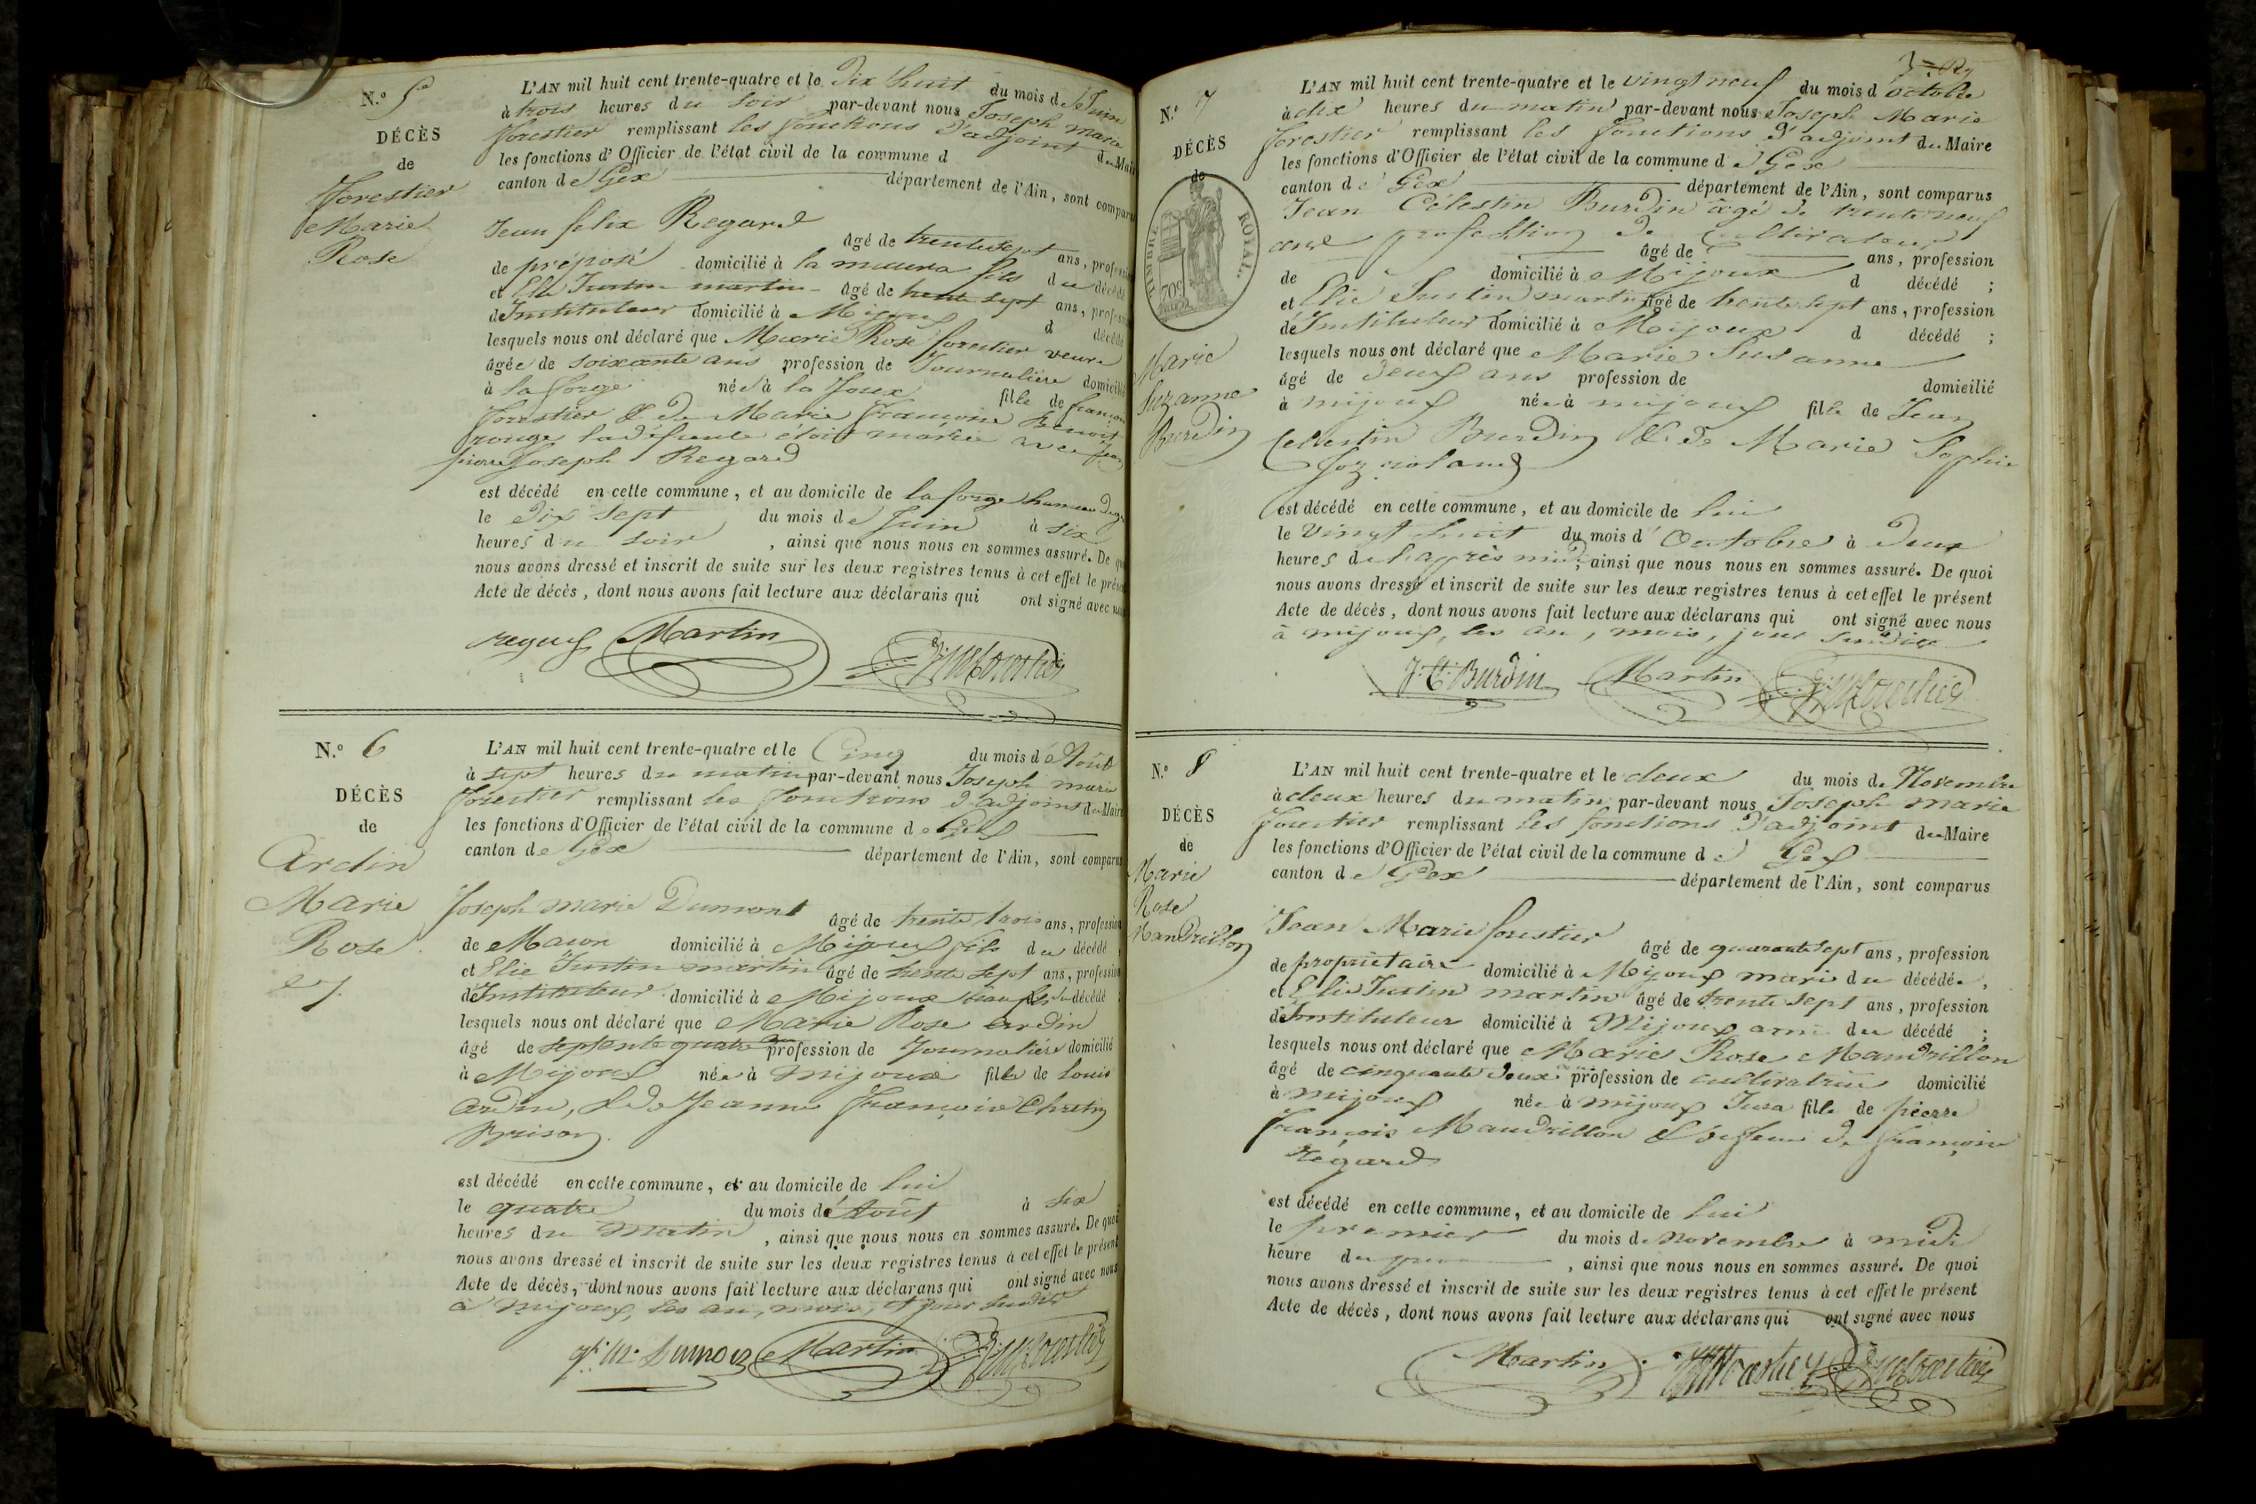 N.° 5
DÉCÈS
de
Forestier
Marie
Rose
L'AN mil huit cent trente-quatre et le Dix huit du mois de Juin
à trois heures du soir par-devant nous Joseph Marie
forestier remplissant les fonctions d'adjoint du Mair
les fonctions d'Officier de l'état civil de la commune d
canton de Gex département de l'Ain, sont comparu
Jean felix Regard
âgé de trente sept ans, profession
de préposé domicilié à la mura fils du décédé
et Elie Justin martin âgé de trente sept ans, profession
d'Instituteur domicilié à Mijoux d décédé
lesquels nous ont déclaré que Marie Rose forestier veuve
âgée de soixante ans profession de Journalière domicilié
à la forge née à la Joux fille de françois
forestier & de Marie françoise Benoit
rouge, la défunte étoit mariée avec
pierre Joseph Regard
est décédé en cette commune, et au domicile de la forge hameau de
le dix sept du mois de Juin à six
heures du soir, ainsi que nous nous en sommes assuré. De quoi
nous avons dressé et inscrit de suite sur les deux registres tenus à cet effet le présent
Acte de décès, dont nous avons fait lecture aux déclarans qui ont signé avec nous
regard Martin J. M. Forestier
N.° 6
DÉCÈS
de
Ardin
Marie
Rose
L'AN mil huit cent trente-quatre et le Cinq du mois d'Août
à sept heures du matin par-devant nous Joseph marie
forestier remplissant les fonctions d'adjoint du Maire
les fonctions d'Officier de l'état civil de la commune de Gex
canton de Gex département de l'Ain, sont comparus
Joseph marie Dumont
âgé de trente trois ans, profession
de Macon domicilié à Mijoux fils du décédé
et Elie Justin martin âgé de trente sept ans, profession
d'Instituteur domicilié à Mijoux du décédé
lesquels nous ont déclaré que Marie Rose ardin
âgé de septente quatre ans profession de Journalière domicilié
à Mijoux née à mijoux fille de louis
ardin, & de Jeanne françoise Chretin
Grison
est décédé en cette commune, et au domicile de lui
le quatre du mois d'Août à six
heures du matin, ainsi que nous nous en sommes assuré. De quoi
nous avons dressé et inscrit de suite sur les deux registres tenus à cet effet le présent
Acte de décès, dont nous avons fait lecture aux déclarans qui ont signé avec nous
à mijoux, les an, mois, et jour susdits
Martin J. M. Forestier
N.° 7
DÉCÈS
de
TIMBRE ROYAL.
70c
Marie
Suzanne
Burdin
L'AN mil huit cent trente-quatre et le vingt neuf du mois d'octobre
à dix heures du matin par-devant nous Joseph Marie
forestier remplissant les fonctions d'adjoint du Maire
les fonctions d'Officier de l'état civil de la commune de Gex
canton de Gex département de l'Ain, sont comparus
Jean Célestin Burdin âgé de trente neuf
ans profession de Cultivateur
âgé de ans, profession
de domicilié à Mijoux d décédé ;
et Elie Justin martin âgé de trente sept ans, profession
d'Instituteur domicilié à Mijoux d décédé ;
lesquels nous ont déclaré que Marie Susanne
âgé de deux ans profession de domicilié
à mijoux née à mijoux fille de Jean
Celestin Burdin & de Marie Sophie
est décédé en cette commune, et au domicile de lui
le vingt huit du mois d'Octobre à deux
heures de l'après midi, ainsi que nous nous en sommes assuré. De quoi
nous avons dressé et inscrit de suite sur les deux registres tenus à cet effet le présent
Acte de décès, dont nous avons fait lecture aux déclarans qui ont signé avec nous
à mijoux, les an, mois, jour susdits
J. C. Burdin Martin J. M. Forestier
N.° 8
DÉCÈS
de
Marie
Rose
Mandrillon
L'AN mil huit cent trente-quatre et le deux du mois de Novembre
à deux heures du matin par-devant nous Joseph marie
forestier remplissant les fonctions d'adjoint du Maire
les fonctions d'Officier de l'état civil de la commune de Gex
canton de Gex département de l'Ain, sont comparus
Jean Marie forestier
âgé de quarante sept ans, profession
de propriétaire domicilié à Mijoux mari du décédé,
et Elie Justin martin âgé de trente sept ans, profession
d'Instituteur domicilié à Mijoux ami du décédé ;
lesquels nous ont déclaré que Marie Rose Mandrillon
âgé de cinquante deux profession de cultivatrice domicilié
à mijoux née à mijoux Jura fille de pierre
françois Mandrillon & de feue de françoise
Regard
est décédé en cette commune, et au domicile de lui
le premier du mois de novembre à midi
heure du jour, ainsi que nous nous en sommes assuré. De quoi
nous avons dressé et inscrit de suite sur les deux registres tenus à cet effet le présent
Acte de décès, dont nous avons fait lecture aux déclarans qui ont signé avec nous
Martin J. M. Forestier